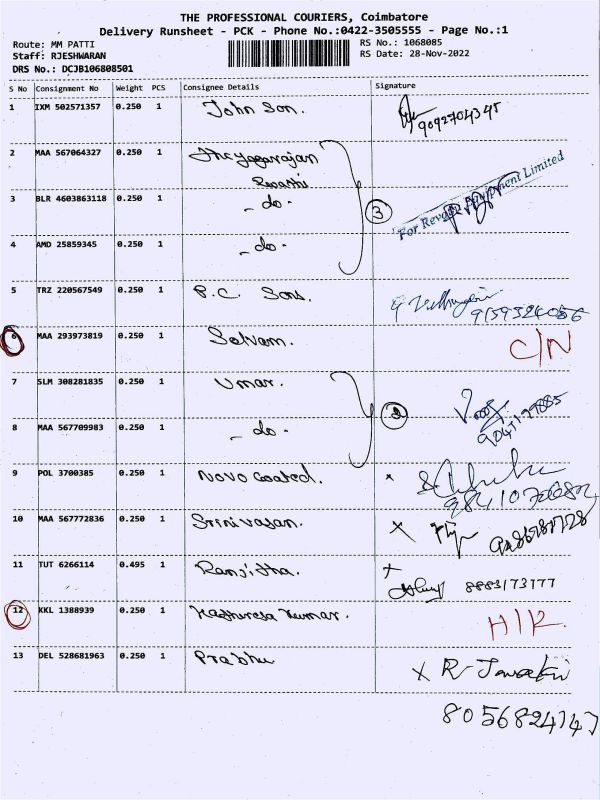 THE PROFESSIONAL COURIERS, Coimbatore
Delivery Runsheet - PCK - Phone No.:0422-3505555 - Page No.:1
Route: MM PATTI
RS No.: 1068085
Staff: RJESHWARAN
RS Date: 28-Nov-2022
DRS No.: DCJB106808501
S No Consignment No Weight PCS Consignee Details Signature
1 IXM 502571357 0.250 1 John Son.
9092704345
2 MAA 567064327 0.250 1
3 BLR 4603863118 0.250 1 - do -
3
For Revo Equipment Limited
4 AMD 25859345 0.250 1 - do -
5 TRZ 220567549 0.250 1 P.C. Sons.
9159324056
6 MAA 293973819 0.250 1 Selvam.
C/N
7 SLM 308281835 0.250 1 Umar.
2
8 MAA 567709983 0.250 1 - do -
9 POL 3700385 0.250 1 Novo coated. x
10 MAA 567772836 0.250 1 Srinivasan. x
11 TUT 6266114 0.495 1 Ranjitha. x
8883173777
12 KKL 1388939 0.250 1 Kumar.
13 DEL 528681963 0.250 1 Prabhu x R
8056824747